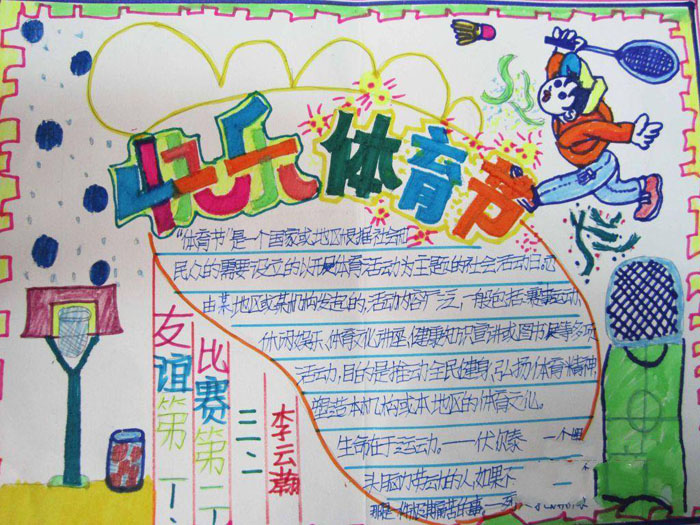 快乐体育节
"体育节"是一个国家或地区根据社会和
民众的需要设立的以开展体育活动为主题的社会活动日。
由某地区或某机构发起的,活动内容广泛,一般包括赛事活动、
休闲娱乐、体育文化讲座、健康知识宣讲或图书展等多项
活动,目的是推动全民健身、弘扬体育精神,
塑造本机构或本地区的体育文化。
生命在于运动。——伏尔泰
一个
的人,如果不
友谊第一、
比赛第二
三、二
李云瀚